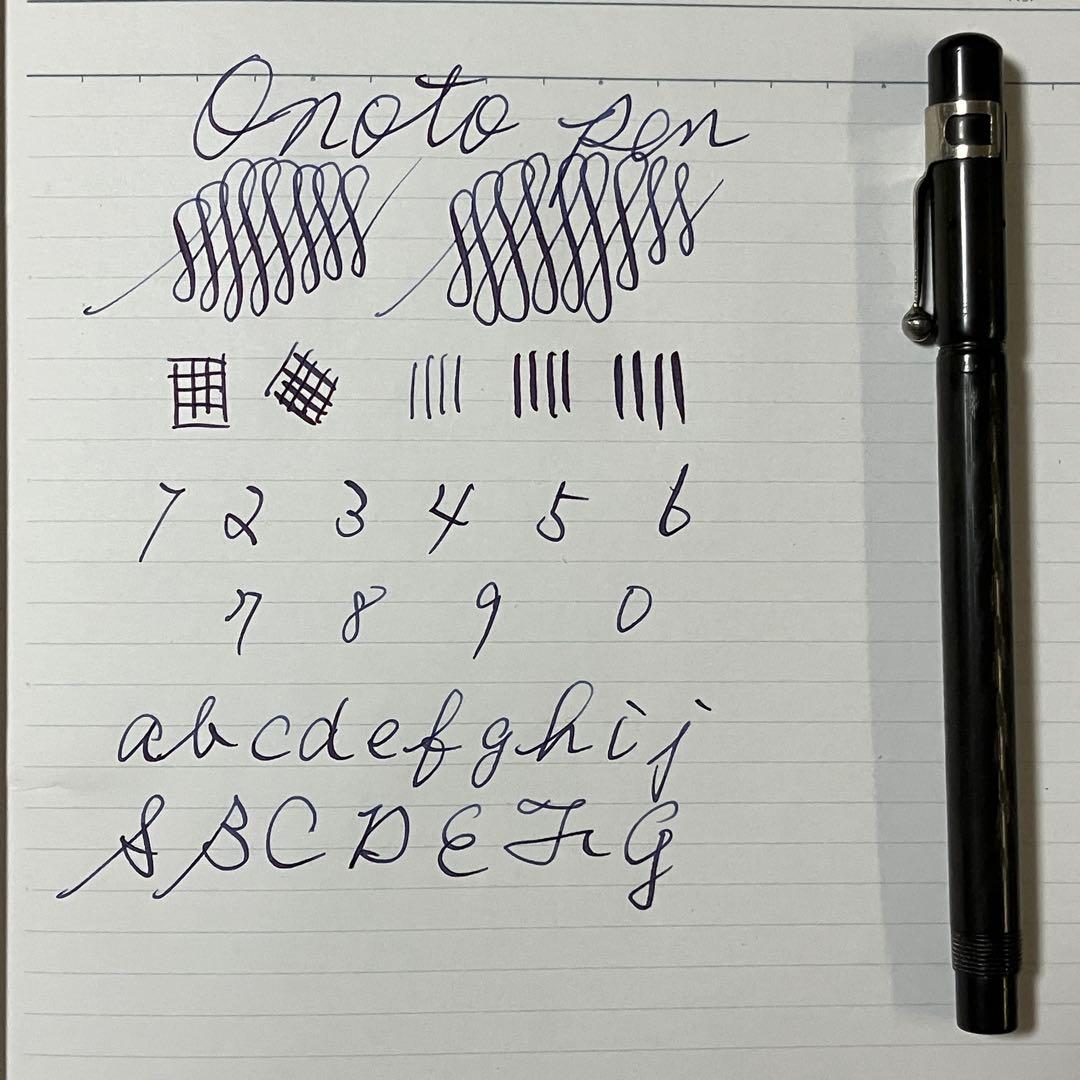 Onoto pen
1 2 3 4 5 6
7 8 9 0
a b c d e f g h i j
A B C D E F G